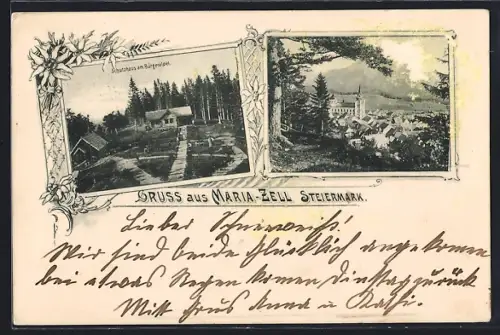 Schutzhaus am Bürgeralpel.
GRUSS aus MARIA-ZELL STEIERMARK.
Lieber Schneeweiss!
Wir sind beide Glücklich angekomen
bei etwas Regen komen Dinstag zurück
Mitt Grus Anna u Kathi.